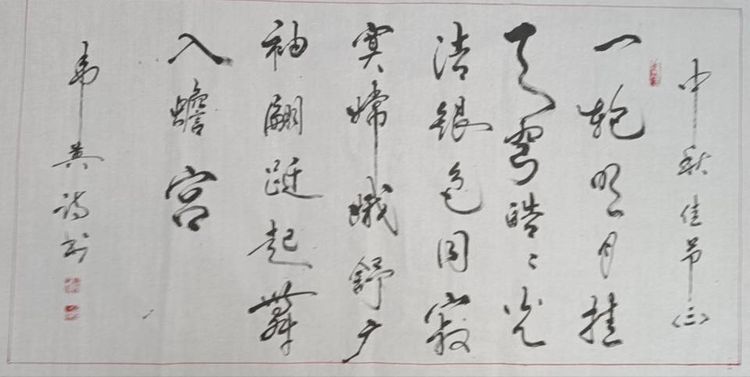 中秋佳节(三)
一轮明月挂
天穹皓〻光
洁银色同寂
寞嫦娥舒广
袖翩跹起舞
入蟾宫
韦 诗书